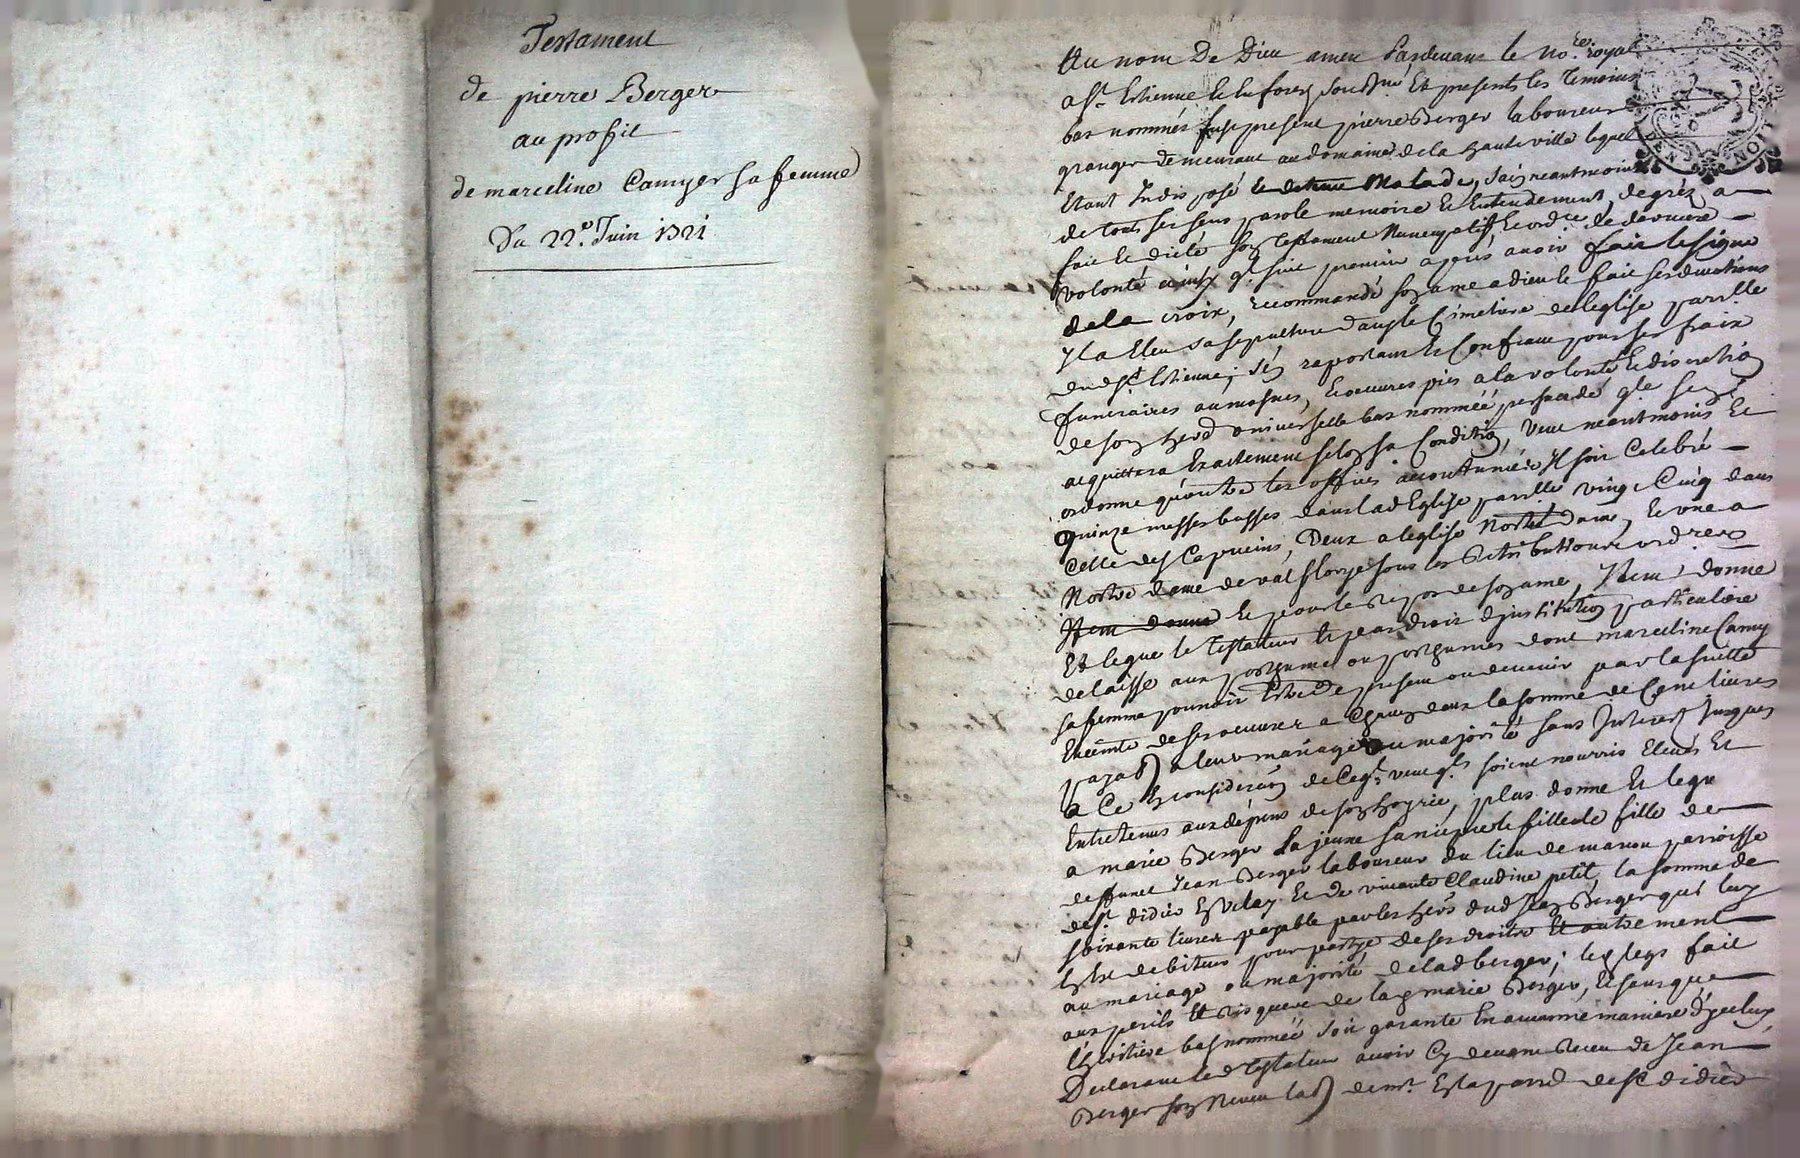 Testament
de pierre Berger
au profit
de marceline Camyer sa femme
Du 22.e Juin 1721
Au nom De Dieu amen Pardevant le No.re royal
a St Estienne En forez soussigné Et presents les temoins
bas nommés fust present pierre Berger laboureur
granger demeurant au domaine de la hauteville lequel
Etant Indisposé Malade, sain neantmoins
de tous ses sens parole memoire Et Entendement, de gré a
fait Et dicté son Testament Nuncupatif, Et ord.ce de derniere
volonté ainsy q.l suit premier apres avoir fait le signe
de la croix, recommandé son ame a dieu Et fait ses devotions
Il a Eleu sa sepulture dans le Cimetiere de leglise parr.lle
dud St Estienne; s'en raportant Et Confiant pour ses fraix
funeraires aumosnes, Et oeuvres pies a la volonté Et discretion
de son herd universelle bas nommée persuadé q.le s'en
acquittera Exactement selon sa Condition, veut neantmoins Et
ordonne qu'outre les offices accoutumés Il soit Celebré
quinze messes basses dans lad Eglise parr.lle vingt Cinq dans
Celle des Capucins, Deux a leglise Nostre Dame, Et une a
Nostre dame de valfloryé sous les Retributions ord.res
Item donne Et pour le Repos de son ame, Item donne
Et legue le Testateur Et par droit d'jnstitution particuliere
delaisse aux posthume ou posthumes dont marceline Camy
sa femme pourroit Estre de present ou devenir par la suitte
Enceinte de ses oeuvres a Chacun deux la somme de Cent livres
payab) a leur mariage ou majorité sans Interest jusques
a Ce En consideration de Ceq.l veut q.ls soient nourris Elevés Et
Entretenus aux dépens de son hoyrie, plus donne Et legue
a marie Berger la jeune sa niepce fille de
deffunct Jean Berger laboureur du lieu de manou parroisse
de St didier En velay Et de vivante Claudine petit, la somme de
soixante livres payable par les hers dud Jean Berger qui luy
Estre debiteurs pour partye de ses droits Et autrement
au mariage ou majorité de lad berger; les legs fait
aux perils Et risques de lad marie Berger, Et sans que
lheritiere bas nommée soit garante En aucune maniere d'yceluy
Declarant led Testateur avoir Cy devant Receu de Jean
Berger son Neveu lab) de Et la parr.e de St didier